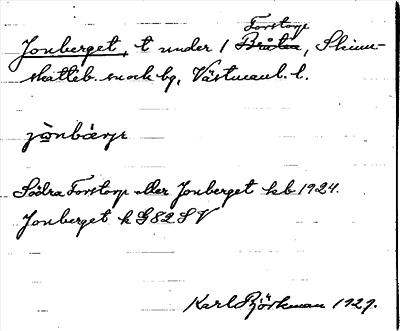 Forstorp
Jonberget, t under 1 Bråten, Skinn-
skatteb. snock bg, Västmanl. l.
jònbærjε
Södra Forstorp eller Jonberget kb 1924.
Jonberget k G82 SV
Karl Björkman 1929.